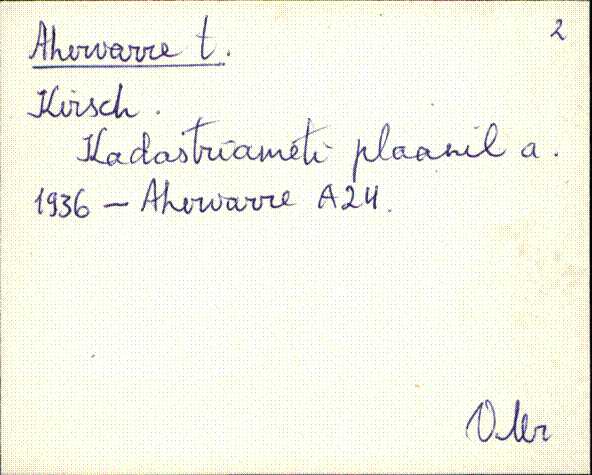 2
Aherwarre t.
Kirsch.
Kadastriameti plaanil a.
1936 – Aherwarre A24.